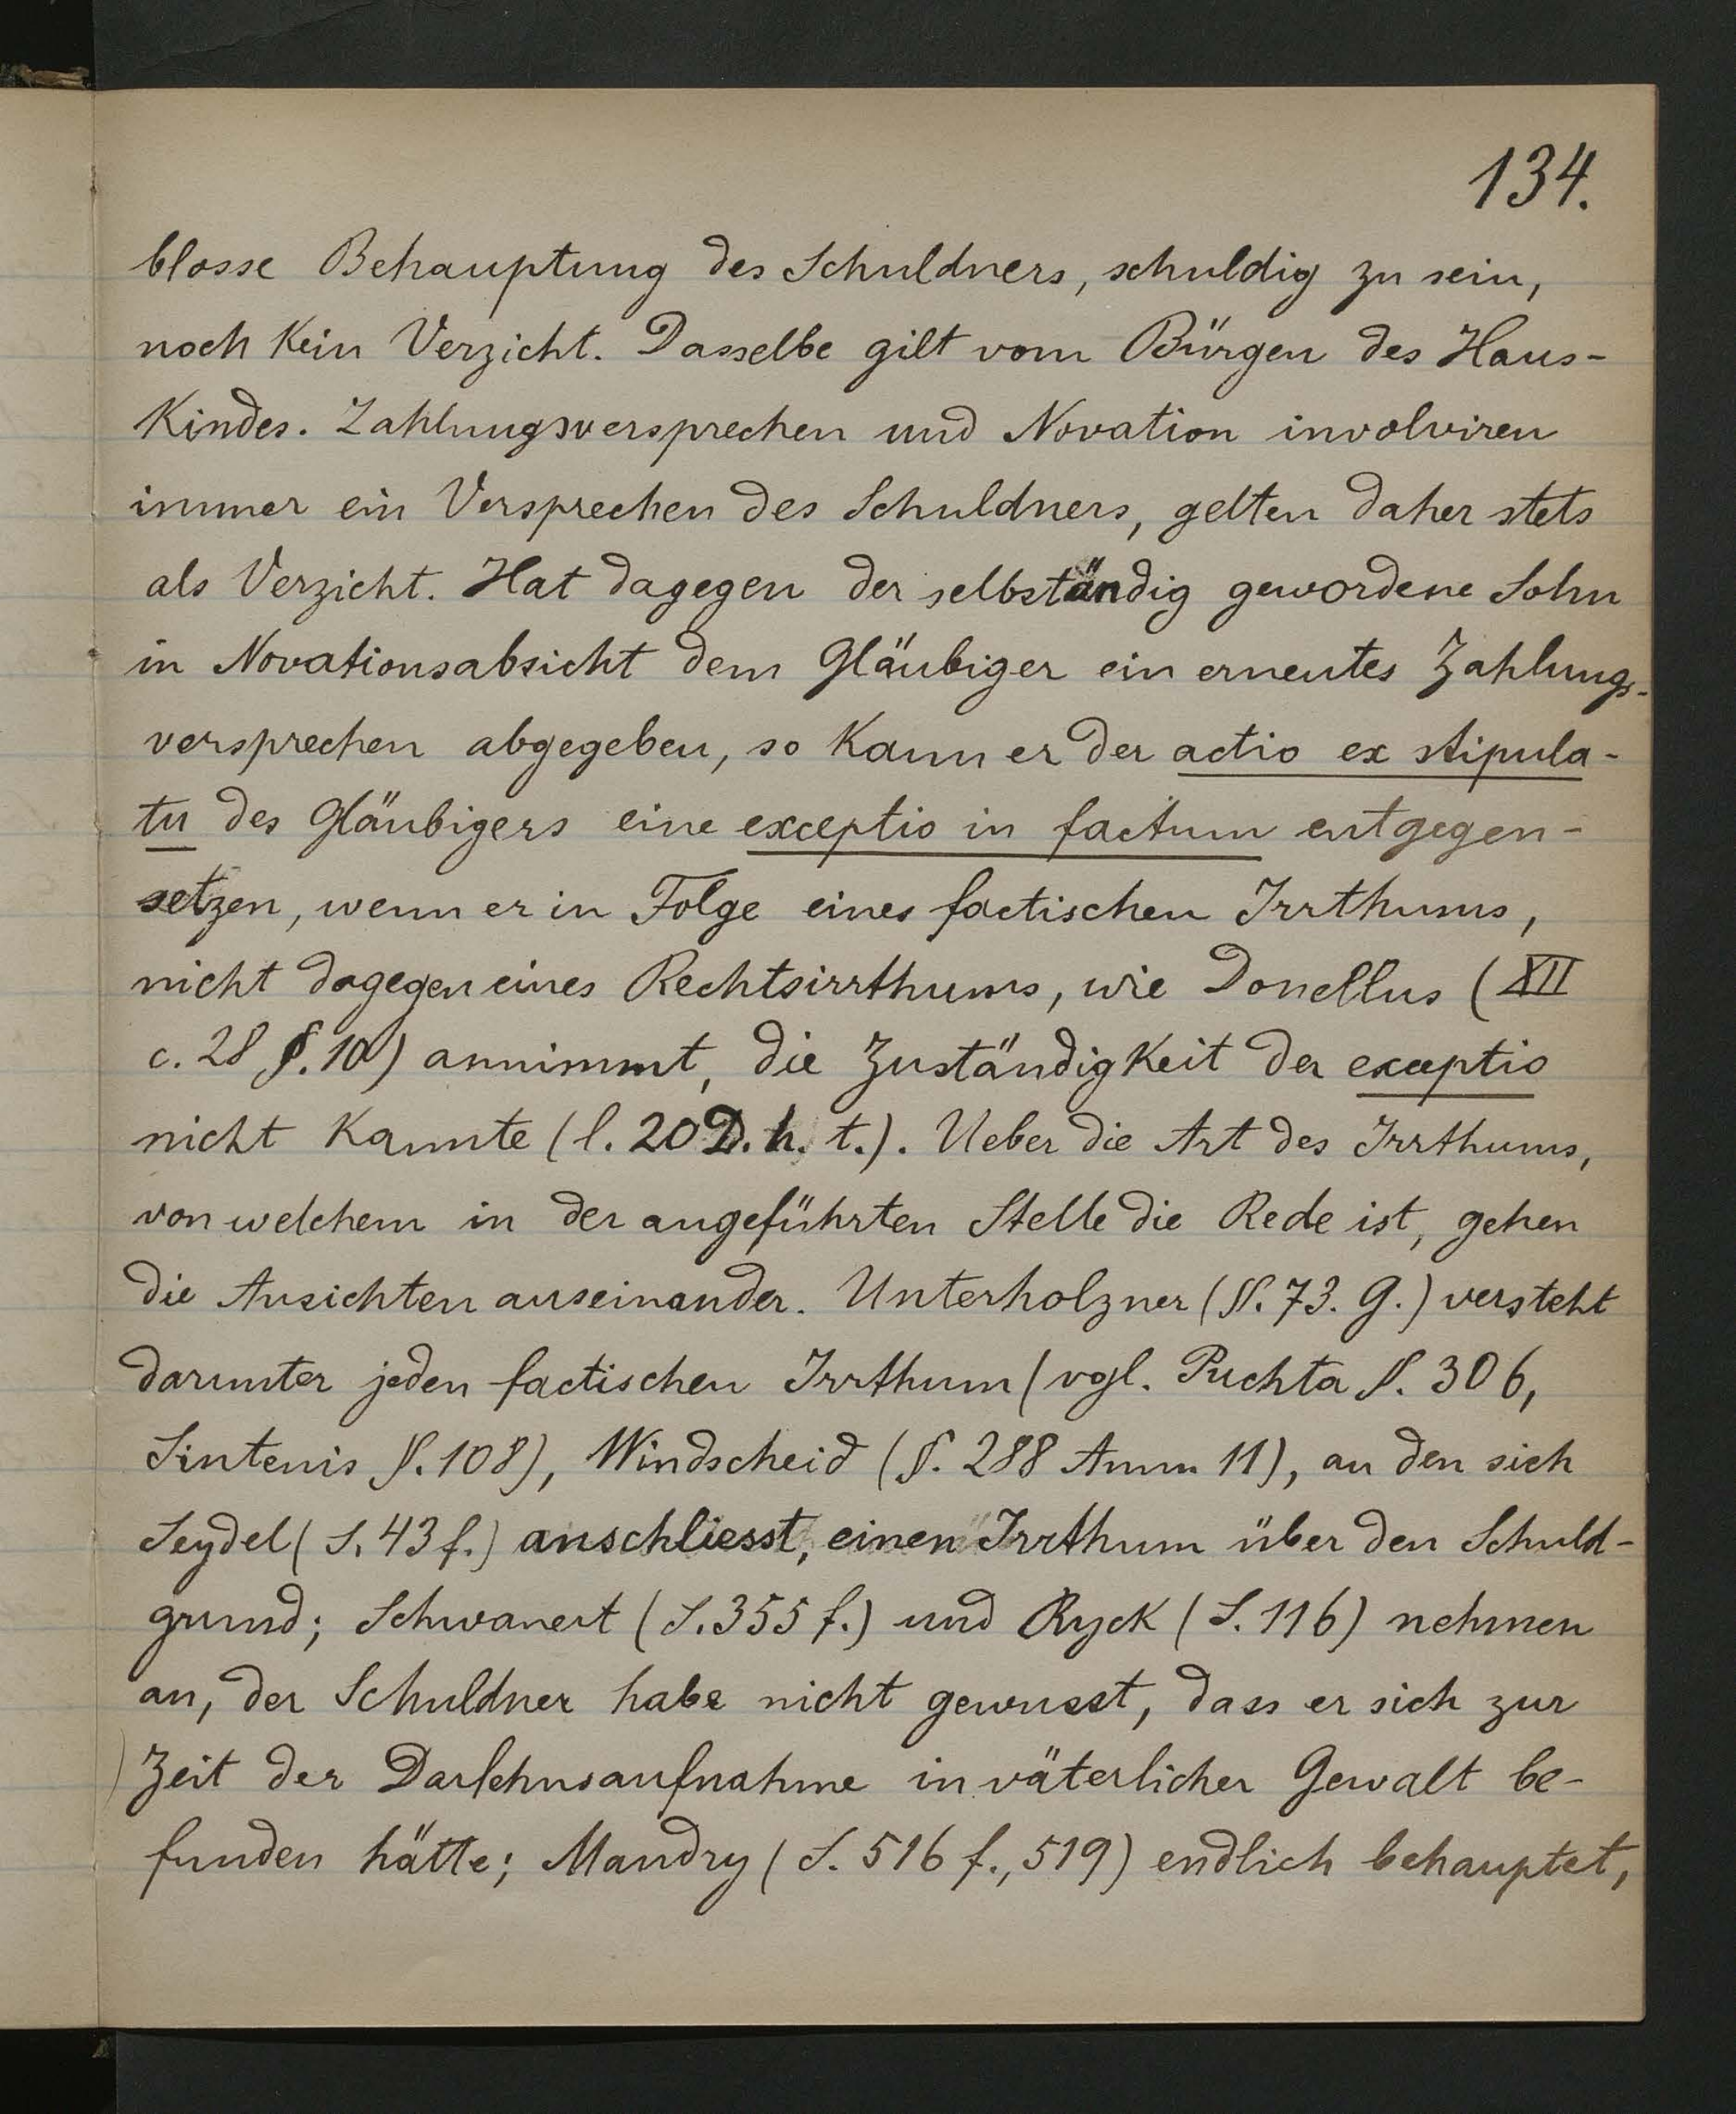 134.
blosse Behauptung des Schuldners, schuldig zu sein,
noch kein Verzicht. Dasselbe gilt vom Bürgen des Haus-
kindes. Zahlungsversprechen und Novation involviren
immer ein Versprechen des Schuldners, gelten daher stets
als Verzicht. Hat dagegen der selbständig gewordene Sohn
in Novationsabsicht dem Gläubiger ein erneutes Zahlungs-
versprechen abgegeben, so kann er der actio ex stipula-
tu des Gläubigers eine exceptio in factum entgegen-
setzen, wenn er in Folge eines factischen Irrthums,
nicht dagegen eines Rechtsirrthums, wie Donellus (XII
c. 28 §. 10) annimmt, die Zuständigkeit der exceptio
nicht kannte (l. 20 D. h. t.). Ueber die Art des Irrthums,
von welchem in der angeführten Stelle die Rede ist, gehen
die Ansichten auseinander. Unterholzner (§. 73. g.) versteht
darunter jeden factischen Irrthum (vgl. Puchta §. 306,
Sintenis §. 108), Windscheid (§. 288 Anm. 11), an den sich
Seydel (S. 43 f.) anschliesst, einen Irrthum über den Schuld-
grund; Schwanert (S. 355 f.) und Ryck (S. 116) nehmen
an, der Schuldner habe nicht gewusst, dass er sich zur
Zeit der Darlehnsaufnahme in väterlicher Gewalt be-
funden hätte; Mandry (S. 516 f., 519) endlich behauptet,